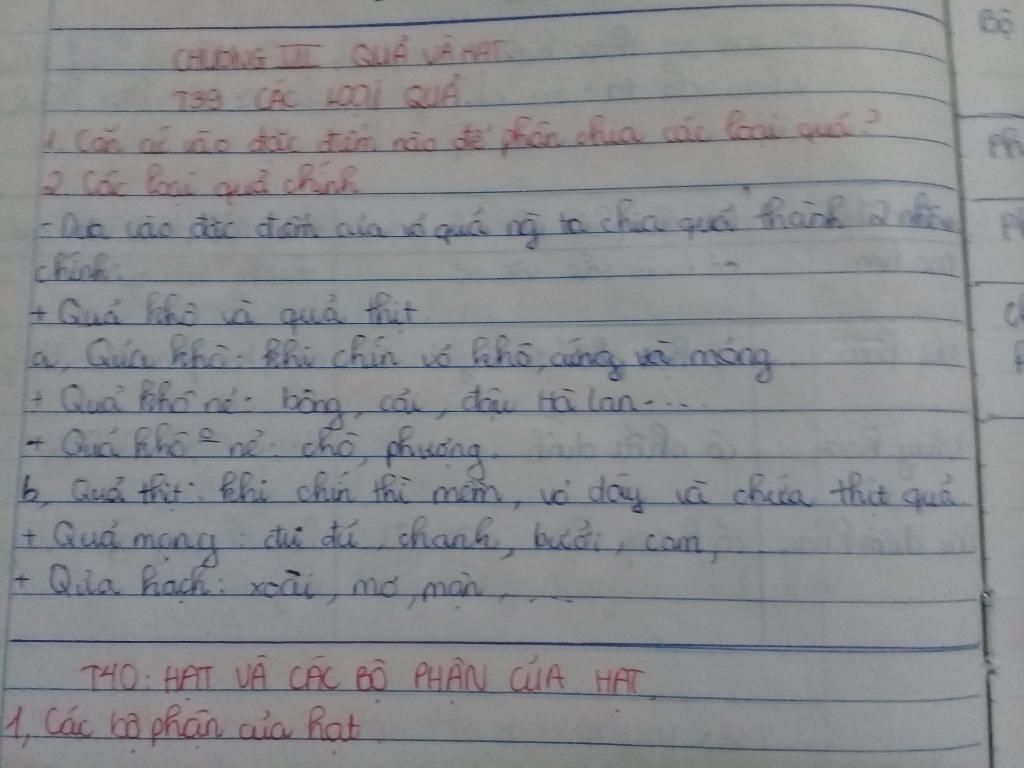 CHƯƠNG III QUẢ VÀ HẠT
T39: CÁC LOẠI QUẢ
1. Căn cứ vào đặc điểm nào để phân chia các loại quả?
2 Các loại quả chính
- Dựa vào đặc điểm của vỏ quả ng ta chia quả thành 2 nhóm
chính:
+ Quả khô và quả thịt
a, Qủa khô: khi chín vỏ khô, cứng và mỏng
+ Quả khô nẻ: bông, cải, đậu Hà lan....
+ Quả khô nẻ: chò, phượng.
b, Quả thịt: khi chín thì mềm, vỏ dày và chứa thịt quả
+ Quả mọng: đu đủ, chanh, bưởi, cam,
+ Qủa hạch: xoài, mơ, mận, ....
T40: HẠT VÀ CÁC BỘ PHẬN CỦA HẠT
1, Các bộ phận của hạt
Bộ